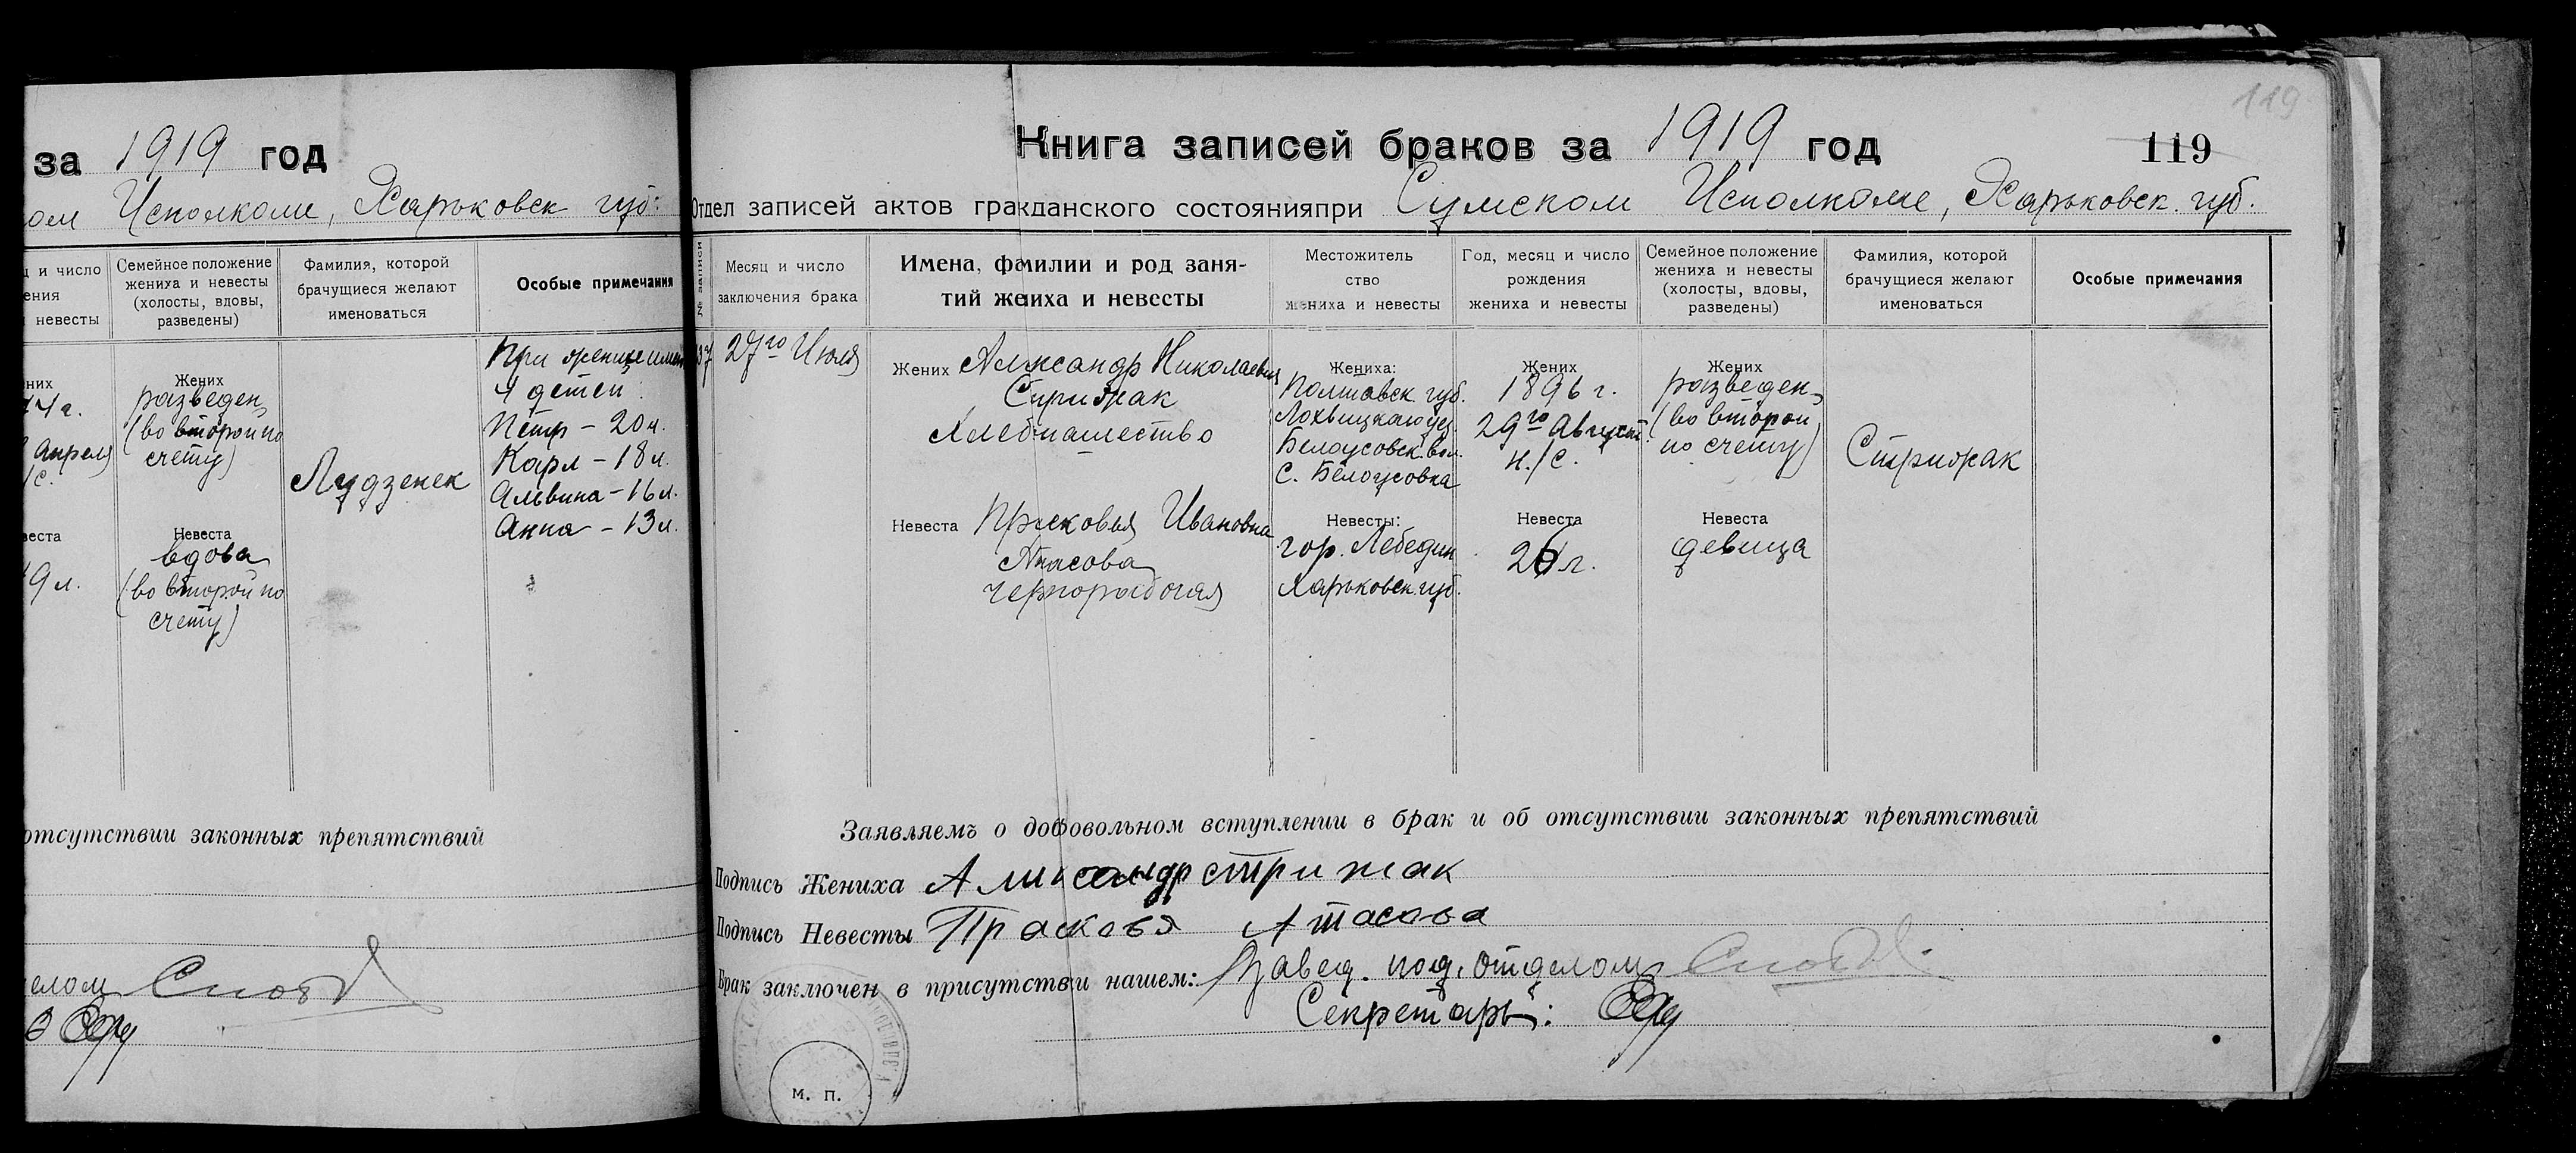 за 1919 год
ом Исполкоме, Харьковск губ.
ц и число
ения
невесты
Семейное положение
жениха и невесты
(холосты, вдовы,
разведены)
Фамилия, которой
брачущиеся желают
именоваться
Особые примечания
них
г.
Апреля
/с.
веста
9 л.
Жених
разведен
(во второй по
счету)
Невеста
вдова
(во второй по
счету)
Лудзенек
При женихе имен
4 детей:
Петр – 20 л.
Карл – 18 л.
Альвина – 16 л.
Анна – 13 л.
отсутствии законных препятствий
елом
119
Книга записей браков за 1919 год
119
Отдел записей актов гражданского состоянияпри Сумском Исполкоме, Харьковск. губ.
№ записи
Месяц и число
заключения брака
Имена, фамилии и род заня-
тий жениха и невесты
Местожитель
ство
жениха и невесты
Год, месяц и число
рождения
жениха и невесты
Семейное положение
жениха и невесты
(холосты, вдовы,
разведены)
Фамилия, которой
брачущиеся желают
именоваться
Особые примечания
27го Июля
Жених Александр Николаевич
Стрижак
Хлебпашество
Невеста Прасковья Ивановна
Атасова
чернорабочая
Жениха:
Полтавск губ.
Лохвицкаго уез.
Белоусовск. вол.
с. Белоусовка
Невесты:
гор. Лебедин
Харьковск. губ.
Жених
1896 г.
29го Августа
н./с.
Невеста
26 л.
Жених
разведен
(во второй
по счету)
Невеста
девица
Стрижак
Заявляемъ о добровольном вступлении в брак и об отсутствии законных препятствий
Подпись Жениха Александр стрижак
Подпись Невесты Прасковя Атасова
Брак заключен в присутствии нашем: Завед. под. отделом
Секретарь:
м. п.